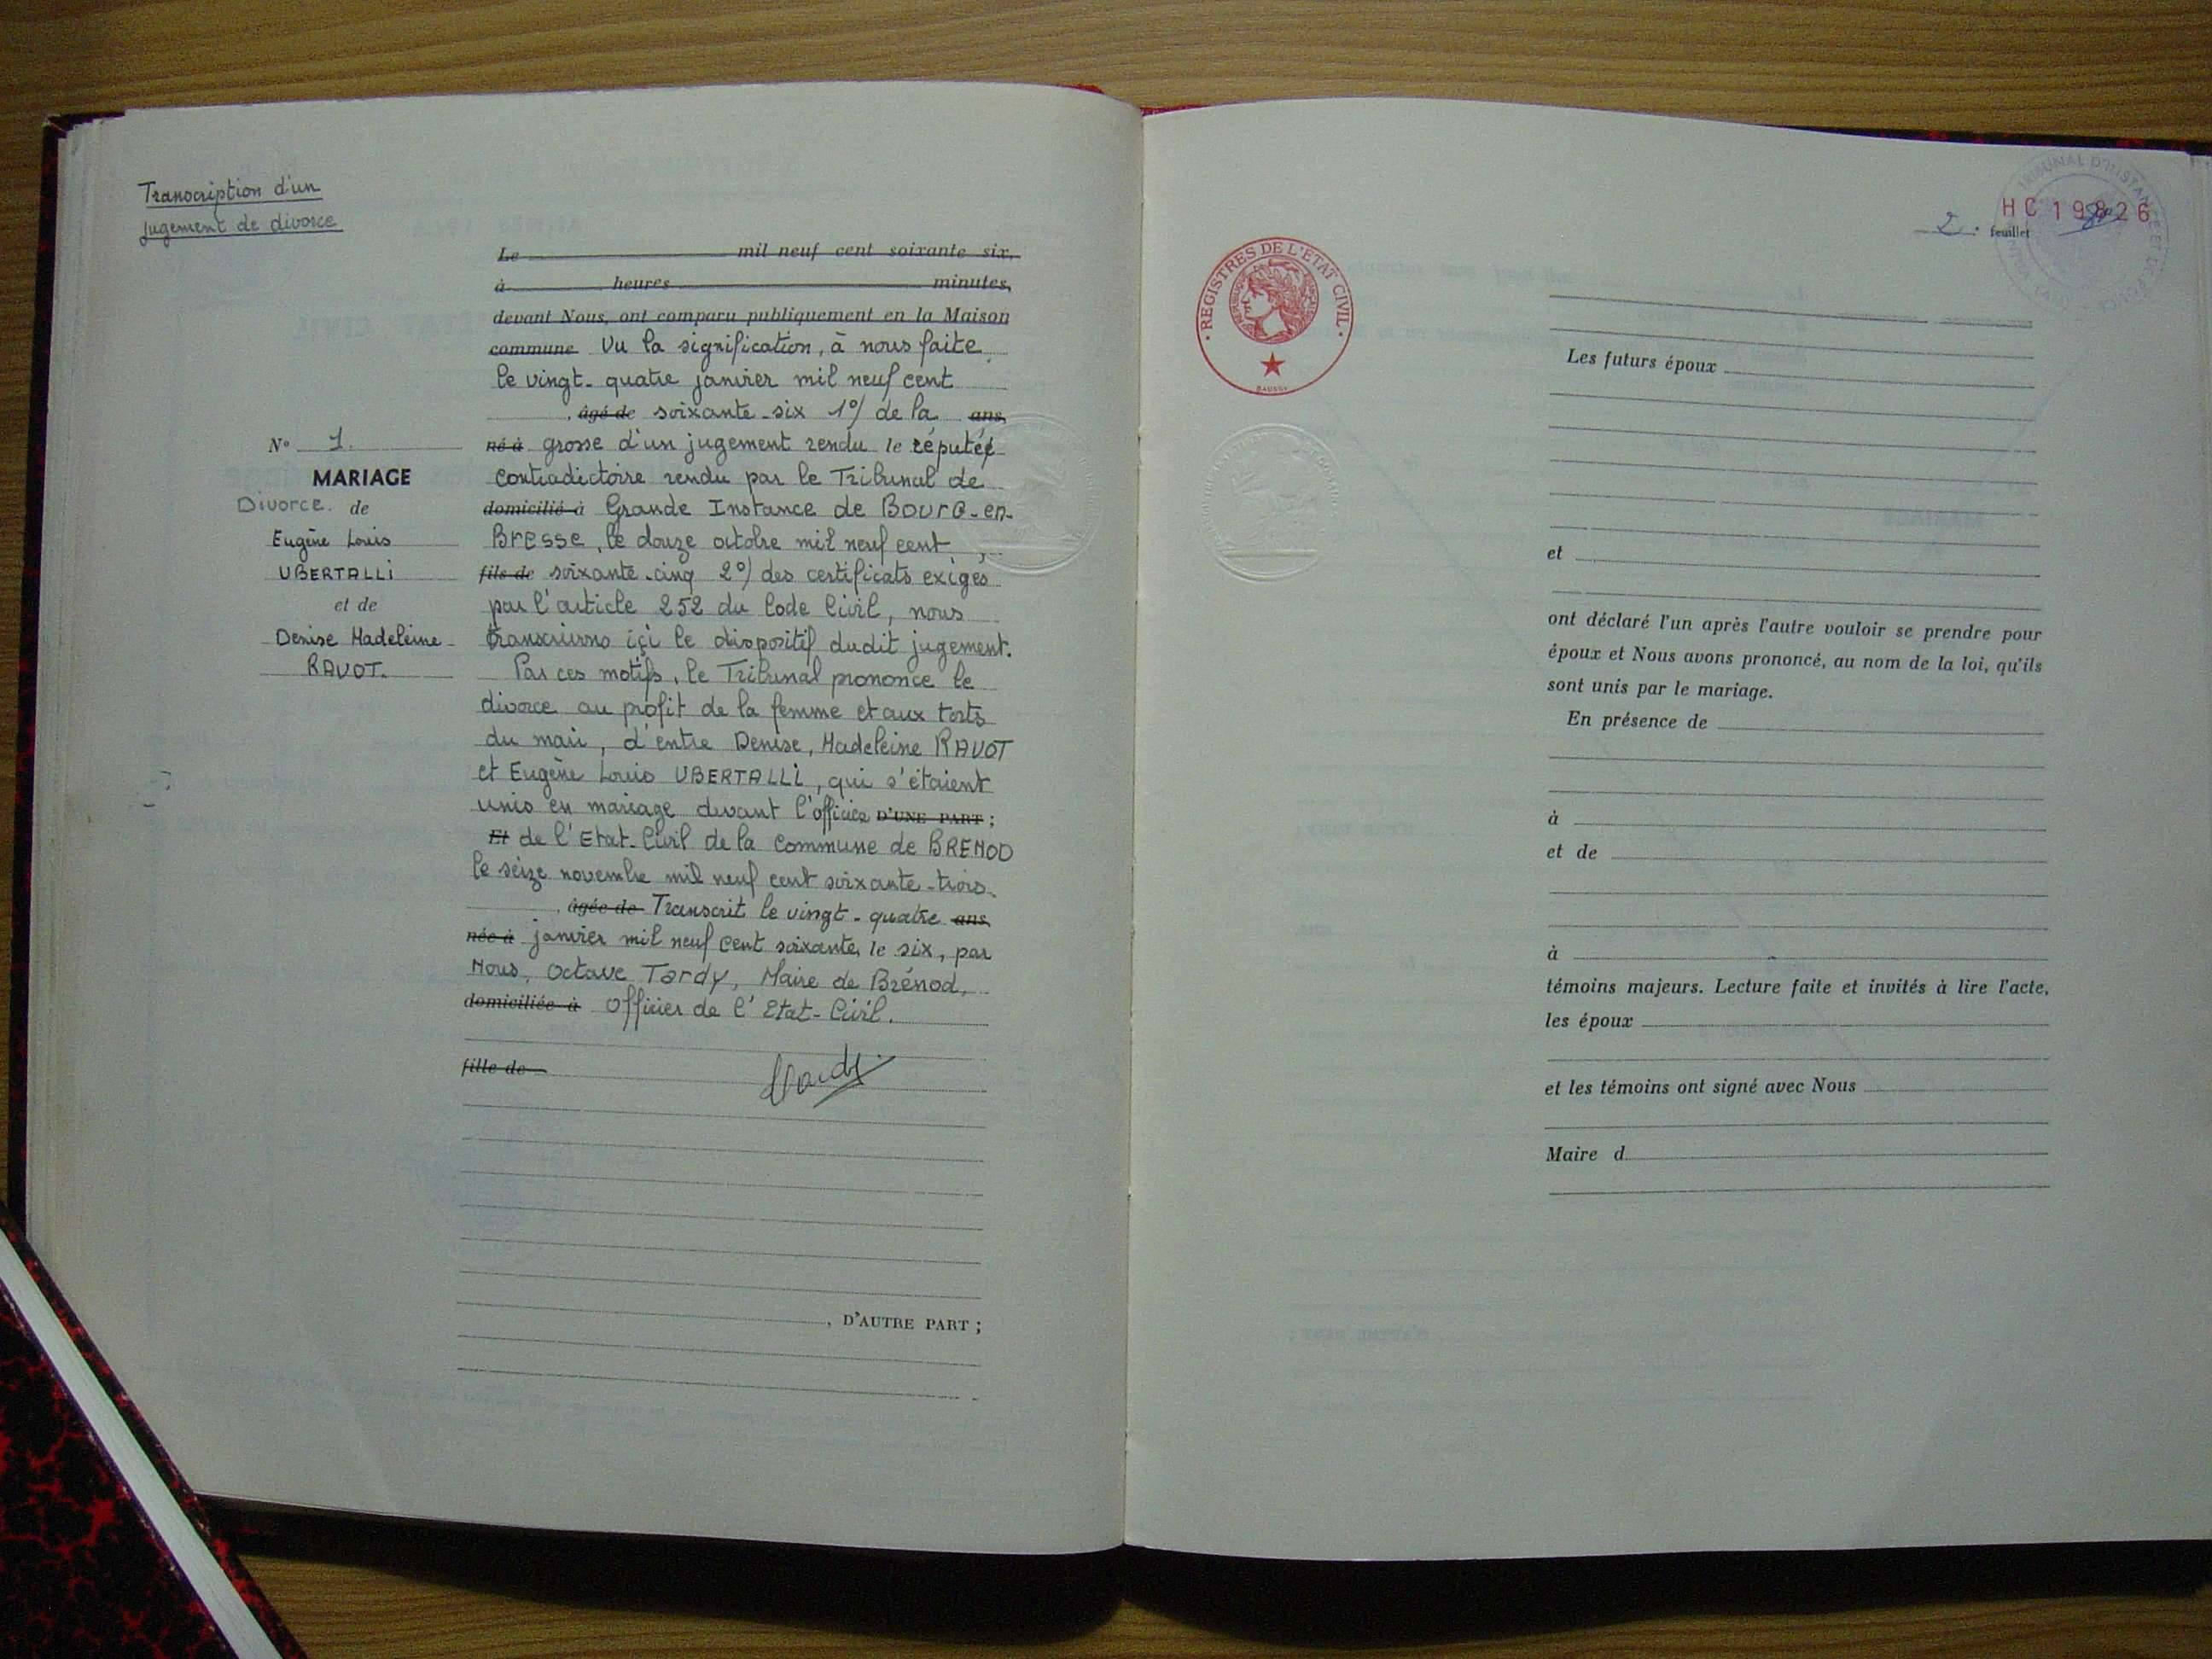 Transcription d'un
jugement de divorce
Le mil neuf cent soixante six,
à heures minutes,
devant Nous, ont comparu publiquement en la Maison
commune Vu la signification, à nous faite
le vingt-quatre janvier mil neuf cent
, âgé de soixante-six 1°/ de la ans,
né à grosse d'un jugement rendu le réputé
contradictoire rendu par le Tribunal de
domicilié à Grande Instance de BOURG-en-
Bresse, le douze octobre mil neuf cent
fils de soixante-cinq 2°/ des certificats exigés
par l'article 252 du Code Civil, nous
transcrivons içi le dispositif dudit jugement.
Par ces motifs, le Tribunal prononce le
divorce au profit de la femme et aux torts
du mari, d'entre Denise, Madeleine RAVOT
et Eugène Louis UBERTALLI, qui s'étaient
unis en mariage devant l'officier D'UNE PART ;
Et de l'Etat-Civil de la Commune de BRENOD
le seize novembre mil neuf cent soixante-trois.
, âgée de Transcrit le vingt-quatre ans,
née à janvier mil neuf cent soixante, le six, par
Nous, Octave Tardy, Maire de Brénod,
domiciliée à Officier de l'Etat-Civil.
fille de
Tardy
, D'AUTRE PART ;
N° 1.
MARIAGE
Divorce. de
Eugène Louis
UBERTALLI
et de
Denise Madeleine
RAVOT.
REGISTRES DE L'ETAT CIVIL
HC 19826
2. feuillet
Les futurs époux
et
ont déclaré l'un après l'autre vouloir se prendre pour
époux et Nous avons prononcé, au nom de la loi, qu'ils
sont unis par le mariage.
En présence de
à
et de
à
témoins majeurs. Lecture faite et invités à lire l'acte,
les époux
et les témoins ont signé avec Nous
Maire d